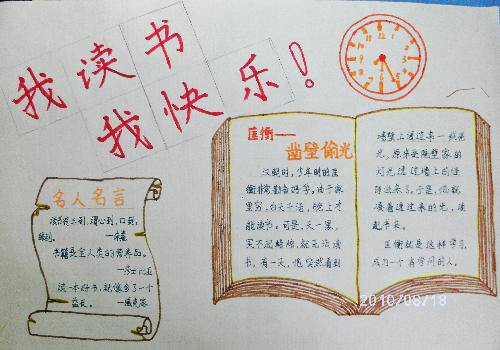 我读书
我快乐！
12
1
2
3
4
5
6
7
8
9
10
11
名人名言
读书有三到，谓心到，口到，
眼到。 —朱熹
书籍是全人类的营养品。
—莎士比亚
读一本好书，就像交了一个
益友。 —臧克家
匡衡——
凿壁偷光
汉朝时，少年时的匡
衡非常勤奋好学。由于家
里穷，白天干活，晚上才
能读书。可是，天一黑，
买不起蜡烛，就无法读
书。有一天，他突然看到
墙壁上透过来一线亮
光，原来是隔壁家的
灯光透过墙上的缝
隙过来了。于是，他就
凑着透过来的光，读
起书来。
匡衡就是这样学习，
成了一个有学问的人。
2010/08/18